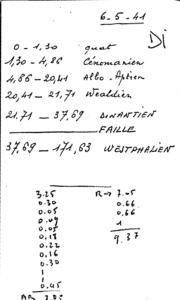 6-5-41
Di
0 - 1,30 quat
1,30 - 4,86 Cénomanien
4,86 - 20,41 Albo-Aptien
20,41 - 21,71 Wealdien
21.71 - 37,69 DINANTIEN
FAILLE
37,69 - 171,63 WESTPHALIEN
3.25 R → 7.05
0.30 0.66
0.05 0.66
0.09 1
0.05 9.37
0.18
0.22
0.16
0.30
1
1
0.45